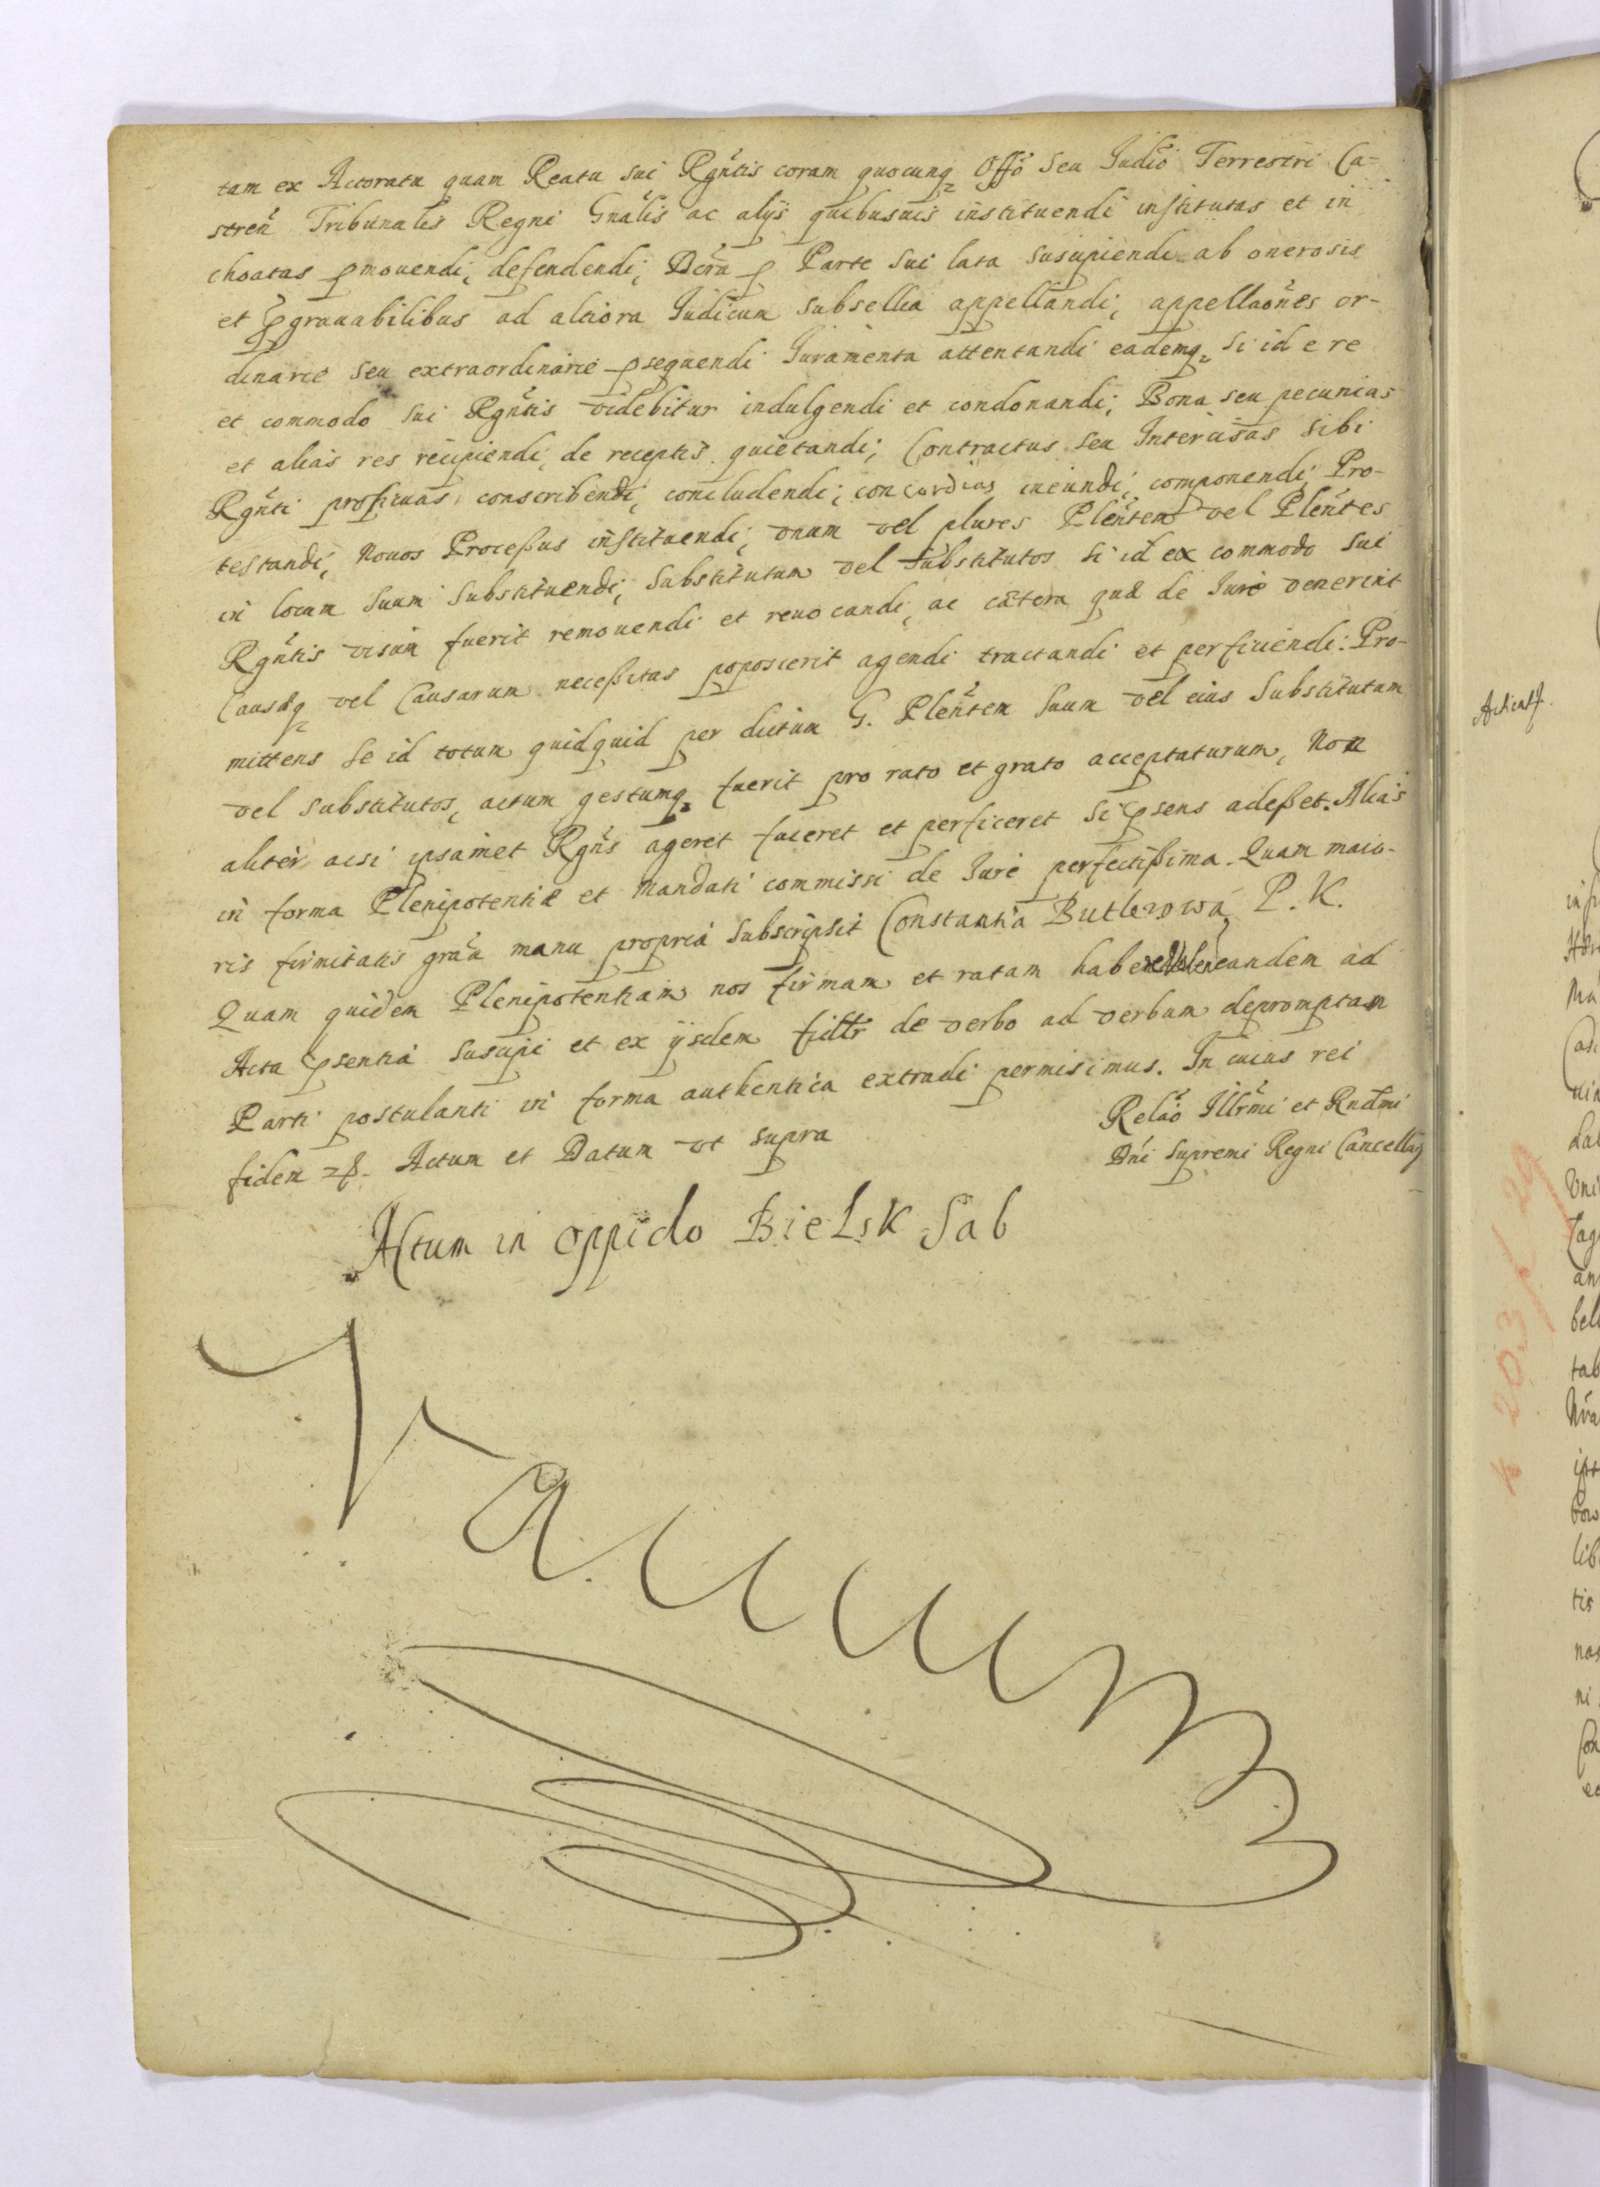 tam ex Actoratu quam Reatu sui Rgñtis coram quocunq Offõ seu Judiõ Terrestri Ca=
streñ Tribunalis Regni Gnãlis ac alijs quibusuis instituendi institutas et in
choatas pmouendi, defendendi; Dcra p Parte sui lata suscipiendi ab onerosis
et pgrauabilibus ad altiora Judicum subsellia appellandi; appellaõnes or-
dinarie seu extraordinarie psequendi Juramenta attentandi eademq, si id e re
et commodo sui Rgñtis videbitur indulgendi et condonandi; Bona seu pecunias
et alias res recipiendi, de receptis quietandi; Contractus seu Intercisas sibi
Rgñti proficuas conscribendi, concludendi; concordias ineundi, componendi, Pro-
testandi, Nouos Proceßus instituendi; vnum vel plures Pleñtem vel Pleñtes
in locum suum substituendi; substitutum vel substitutos si id ex commodo sui
Rgñtis visum fuerit remouendi et reuocandi, ac cætera quæ de Jure venerint
Causæq vel Causarum neceßitas poposcerit agendi tractandi et perficiendi: Pro-
mittens se id totum quidquid per dictum G. Pleñtem suum vel eius substitutum
vel substitutos, actum gestumq fuerit pro rato et grato acceptaturum, Non
aliter acsi ipsamet Rgñs ageret faceret et perficeret si psens adeßet. Alias
in forma Plenipotentiæ et Mandati commissi de Jure perfectißima. Quam maio-
ris firmitatis grãa manu propria subscripsit Constantia Butlerowa P. K.
Quam quidem Plenipotentiam nos firmam et ratam habere eandem ad
Acta psentia suscipi et ex ijsdem fidlr de verbo ad verbum depromptam
Parti postulanti in forma authentica extradi permisimus. In cuius rei
fidem Actum et Datum vt supra
Relaõ Illrmi et Rndmi
Dni Supremi Regni Cancellarij
Actum in oppido Bielsk Sab
Vacuum
Acticat.